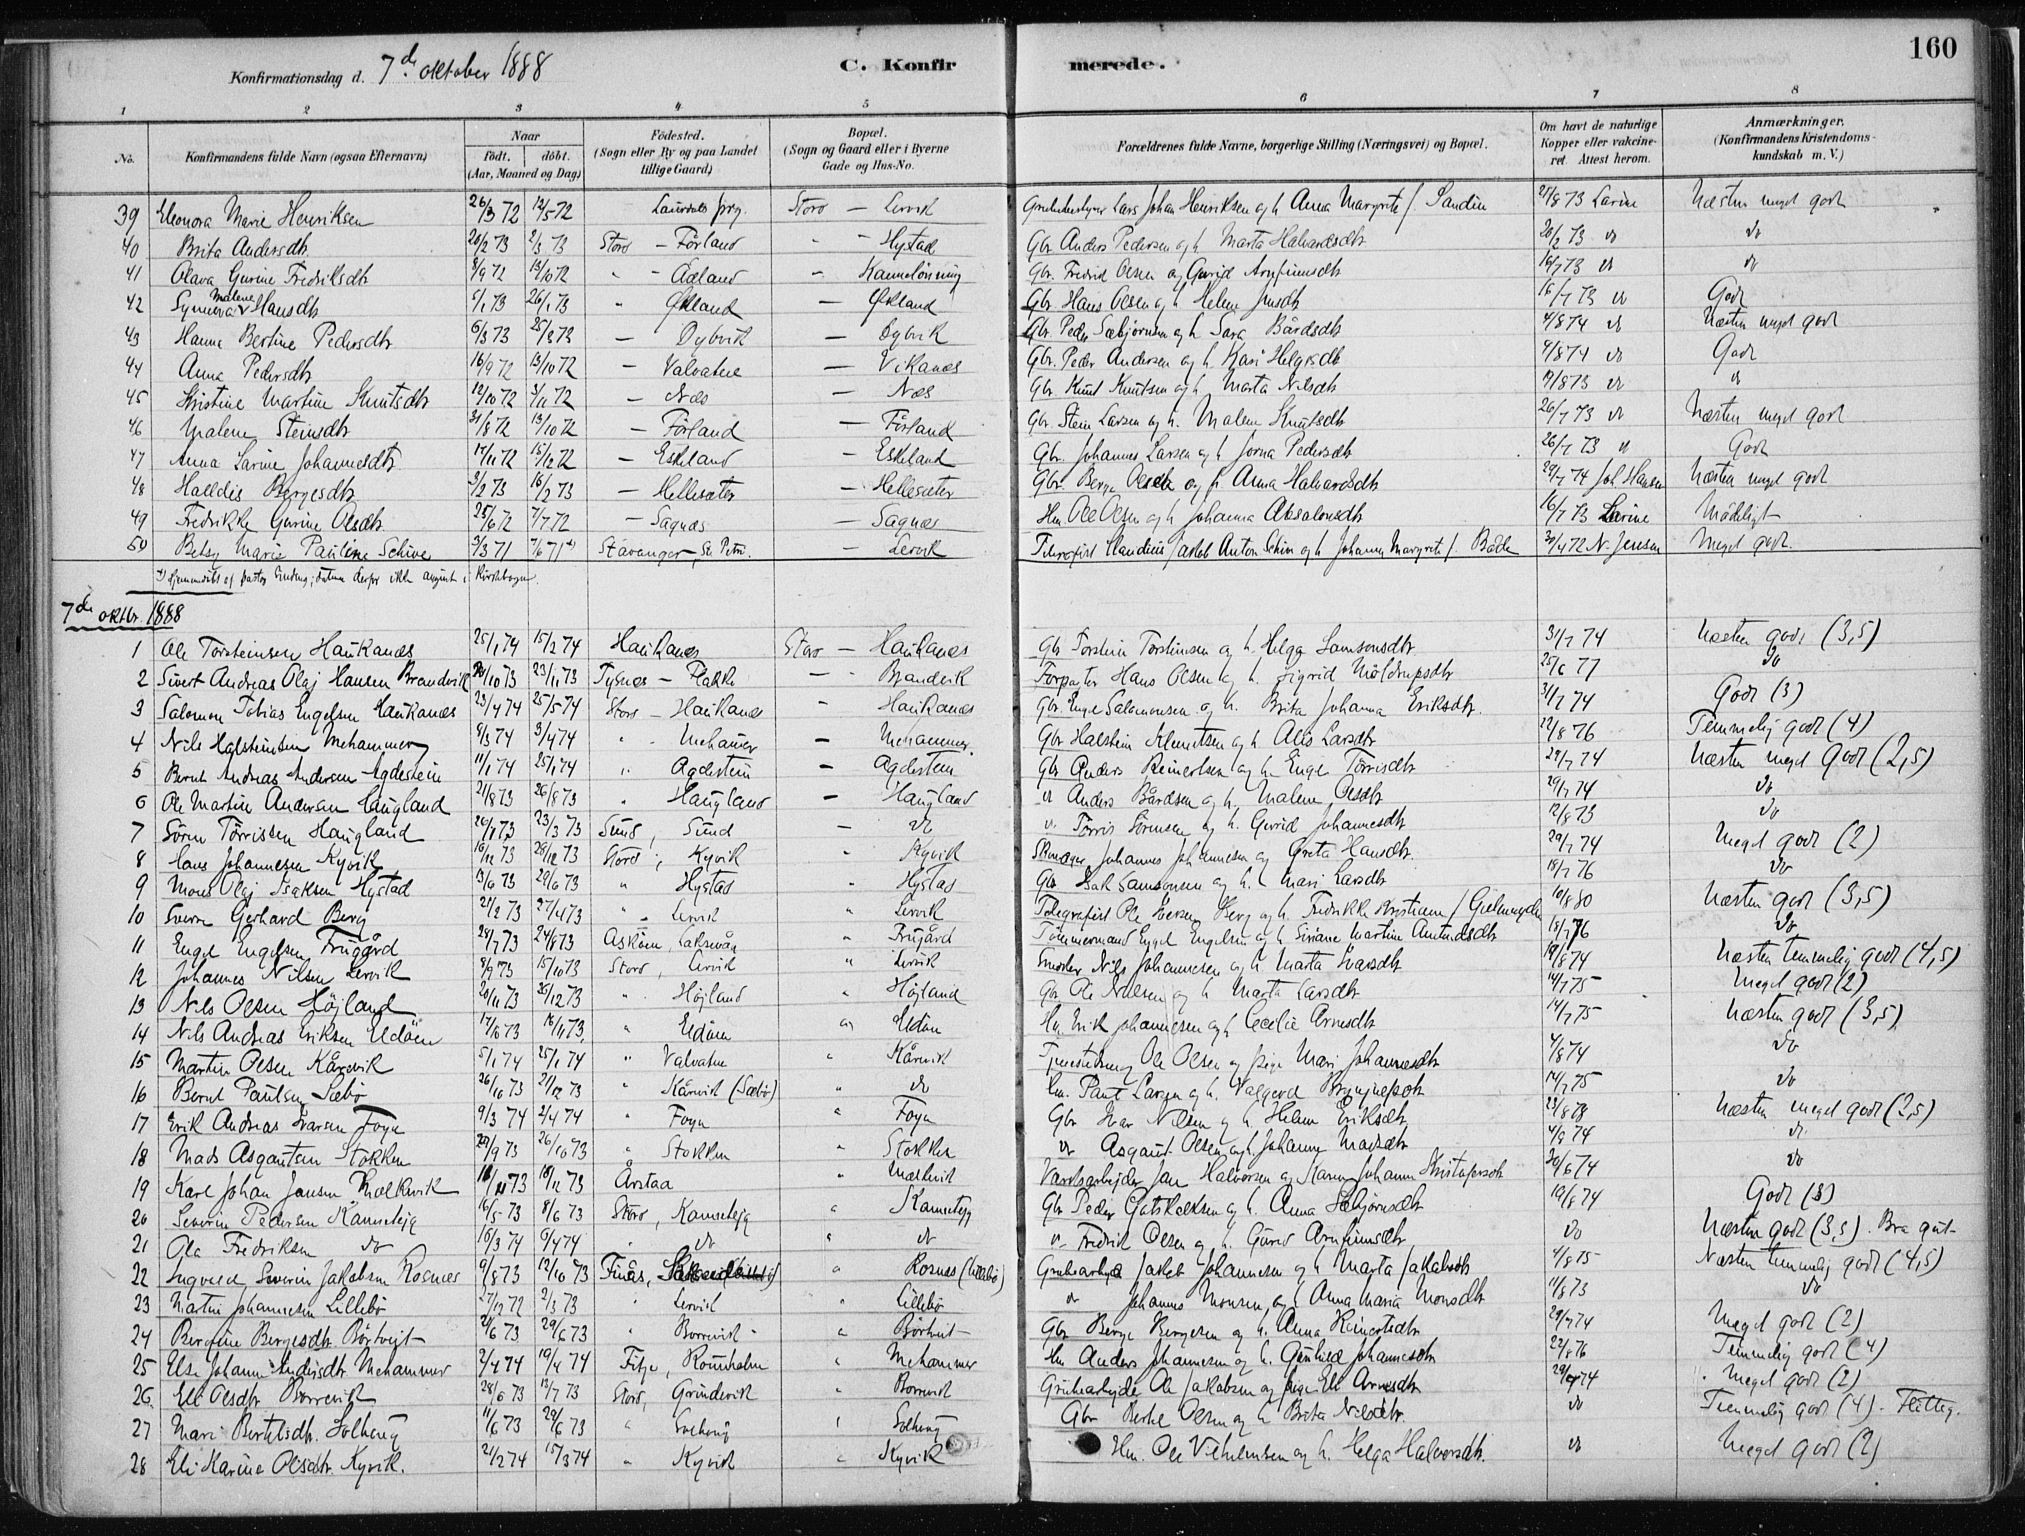 160
Konfirmationsdag d. 7de oktober 1888 C. Konfirmerede.
1 2 3 4 5 6 7 8
No. Konfirmandens fulde Navn (ogsaa Efternavn) Naar født. døbt. (Aar, Maaned og Dag) Födested. (Sogn eller By og paa Landet tillige Gaard) Bopæl. (Sogn og Gaard eller i Byerne Gade og Hus-No. Forældrenes fulde Navne, borgerlige Stilling (Næringsvei) og Bopæl. Om havt de naturlige Kopper eller vakcineret. Attest herom. Anmærkninger. (Konfirmandens Kristendomskundskab m. V.)
39 Eleonora Marie Henriksen 26/3 72 12/5 72 Stord — Lervik Lars Johan Henriksen og h. Anna Margrete f. Sandin 21/8 73 Larine Næsten meget godt
40 Brita Andersdtr. 20/2 73 2/3 73 Stord — Förland - - Hystad Gbr. Anders Pedersen og h. Marta Halvardsdtr 20/2 73 do do
41 Olava Gurine Fredriksdtr 8/9 72 13/10 72 - - Adland - Gbr. Fredrik Olsen og Gurid Arnfinnsdtr 16/7 73 do do
42 Synneva Malene Hansdtr 5/1 73 26/1 73 " Økland — Økland Gbr. Hans Olsen og h. Helene Jensdtr 16/7 73 do Godt
43 Hanne Bertine Pedersdtr 6/3 73 25/3 73 — Dybvik — Dybvik Gbr. Peder Sæbjörnsen og h. Sara Bårdsdtr 4/8 74 do Næsten meget godt
44 Anna Pedersdtr 16/9 72 13/10 72 — Valvatne — Vikanes Gbr. Peder Andersen og h. Kari Helgesdtr 4/8 74 do Godt
45 Kristine Martine Knutsdtr 12/10 72 3/11 72 — Næs — Næs Gbr. Knut Knutsen og h. Marta Nilsdtr 19/8 73 do do
46 Malene Steinsdtr 31/8 72 13/10 72 — Förland — Förland Gbr. Stein Larsen og h. Malene Knutsdtr 26/7 73 do Næsten meget godt
47 Anna Larine Johannesdtr 17/11 72 15/12 72 — Eskeland — Eskeland Gbr. Johannes Larsen og h. Jorna Pedersdtr 26/7 73 do Godt
48 Halldis Bergesdtr 3/2 73 16/2 73 — Hellesæter — Hellesæter Gbr. Berge Olsen og h. Anna Halvardsdtr 29/7 74 Joh Hansen Næsten meget godt
49 Fredrikke Gurine Olsdtr 25/6 72 7/7 72 — Sagnæs — Sagnæs Hm. Ole Olsen og h. Johanna Absalonsdtr 16/7 73 Larine Mådeligt
50 Betsy Marie Pauline Schive 3/3 71 7/6 71 *) Stavanger, St. Petri — Lervik Jakob Anton Schive og h. Johanne Margrete f. 30/4 72 N. Jensen Meget godt.
7de oktbr. 1888
1 Ole Torsteinsen Haukanæs 25/1 74 15/2 74 Haukanes Stord — Haukanæs Gbr Torstein Torsteinsen og h. Helga Samsonsdtr 31/7 74 Næsten godt (3,5)
2 Sivert Andreas Olaj Hansen Brandvik 20/10 73 23/11 73 Tysnæs — Flakke — - Brandvik Forpagter Hans Olsen og h. Sigrid 25/6 77 do
3 Salomon Tobias Engelsen Haukanæs 23/4 74 25/5 74 Stord — Haukanæs - Haukanæs Gbr. Engel Salomonsen og h. Brita Johanna Eriksdtr. 31/7 74 Godt (3)
4 Nils Halsteinsen Mehammer 8/3 74 3/4 74 " Mehammer — Mehammer Gbr Halstein Klemetsen og h. Alis Larsdtr 22/8 76 Temmelig godt (4)
5 Bernt Andreas Andersen Agdestein 11/1 74 25/1 74 " Agdestein — Agdestein Gbr Anders Reinertsen og h. Engel Torrisdtr 29/7 74 Næsten meget godt (2,5)
6 Ole Martin Andersen Haugland 21/8 73 26/8 73 " Haugland — Haugland do Anders Bårdsen og h. Malene Olsdtr 29/7 74 do
7 Sören Törrissen Haugland 26/1 73 23/3 73 Sund, Sund — do do Törris Sörensen og h. Gurid Johannesdtr 12/8 73 do
8 Hans Johannesen Kyvik 16/12 73 28/12 73 Stord, Kyvik " Kyvik Johannes Johannesen og Greta Hansdtr. 29/7 74 Meget godt (2)
9 Mons Olaj Isaksen Hystad 13/6 73 29/6 73 " Hystad " Hystad Gbr Isak Samsonsen og h. Mari Larsdtr 18/7 76 do
10 Sverre Gerhard Berg 21/2 73 27/4 73 " Lervik " Lervik Telegrafist Ole Iversen Berg og h. Fredrikke Kristiane f. 10/8 80 Næsten godt (3,5)
11 Engel Engelsen Frugård 28/7 73 24/8 73 Askön, Laksevåg " Frugård Tömmermand Engel Engelsen og h. Siviane Martine Amundsdtr 18/7 76 do
12 Johannes Nilsen Lervik 8/9 73 15/10 73 Stord, Lervik " Lervik Snedker Nils Johannesen og h. Marta Ivarsdtr 19/8 74 Næsten temmelig godt (4,5)
13 Nils Olsen Höjland 20/11 73 26/12 73 " Höjland " Höjland Gbr Ole Nilsen og h. Marta Larsdtr 14/7 75 Meget godt (2)
14 Nils Andreas Eriksen Eldöen 17/6 73 16/11 73 " Eldöen " Eldöen Hm. Erik Johannesen og h. Cecilie Arnesdtr 14/7 75 Næsten godt (3,5)
15 Martin Olsen Kårevik 5/1 74 25/1 74 " Valvatne " Kårevik Ole Olsen og pige Mari Johannesdtr 4/8 74 do
16 Bernt Paulsen Sæbö 26/10 73 21/12 73 " Kårevik (Sæbö) " do Hm. Paul Larsen og h. Valgerd 14/7 75 do
17 Erik Andreas Ivarsen Foyn 9/3 74 2/4 74 " Foyn " Foyn Gbr Ivar Nilsen og h. Helene Eriksdtr 23/8 78 Næsten meget godt (2,5)
18 Mads Asgautsen Stokken 29/9 73 26/10 73 " Stokken " Stokken do Asgaut Olsen og h. Johanne Madsdtr 4/9 74 do
19 Karl Johan Jansen 16/11 73 18/12 73 Årstad " Jan Halvorsen og Karen Johanne Kristofersdtr 20/6 74 do
20 Severin Pedersen Kannelejg 16/5 73 8/6 73 Stord, Kannelejg " Kannelejg Gbr Peder Gotskalksen og h. Anna Sæbjörnsdtr 19/8 74 Godt (3)
21 Ola Fredriksen do 16/3 74 6/4 74 " do " do do Fredrik Olsen og h. Gurid Arnfinnsdtr do Næsten godt (3,5). Bra gut
22 Ingvald Severin Jakobsen Rosnæs 9/8 73 12/10 73 Finås, " Rosnæs (Lillebö) Grubearbejder Jakob Johannesen og h. Marta Jakobsdtr 4/8 75 Næsten temmelig godt (4,5)
23 Martin Johannesen Lillebö 27/12 72 2/3 73 " Lervik " Lillebö do Johannes Monsen og h. Anna Maria Monsdtr 11/8 73 do
24 Bergine Bergesdtr Börtvejt 21/6 73 29/6 73 " Borrevik " Börtveit Gbr Berge Bergesen og h. Anna Reinertsdtr 29/7 74 Meget godt (2)
25 Else Johanne Andersdtr Mehammer 2/4 74 19/4 74 Fitje, Roumholm " Mehammer Hm Anders Johannesen og h. Gunhild Johannesdtr 22/8 76 Temmelig godt (4)
26 Eli Olsdtr Borrevik 28/6 73 13/7 73 Stord, Grundevik " Borrevik Grubearbejder Ole Jakobsen og pige Eli Arnesdtr 29/7 74 Meget godt (2)
27 Mari Bertelsdtr. Solheug 11/6 73 29/6 73 " Solheug " Solheug Gbr Bertel Olsen og h. Brita Nilsdtr. do Temmelig godt (4). Flittig.
28 Eli Karine Olsdtr Kyvik. 21/2 74 15/3 74 " Kyvik " Kyvik Hm. Ole Vilhelmsen og h. Helga Halvorsdtr. do Meget godt (2)